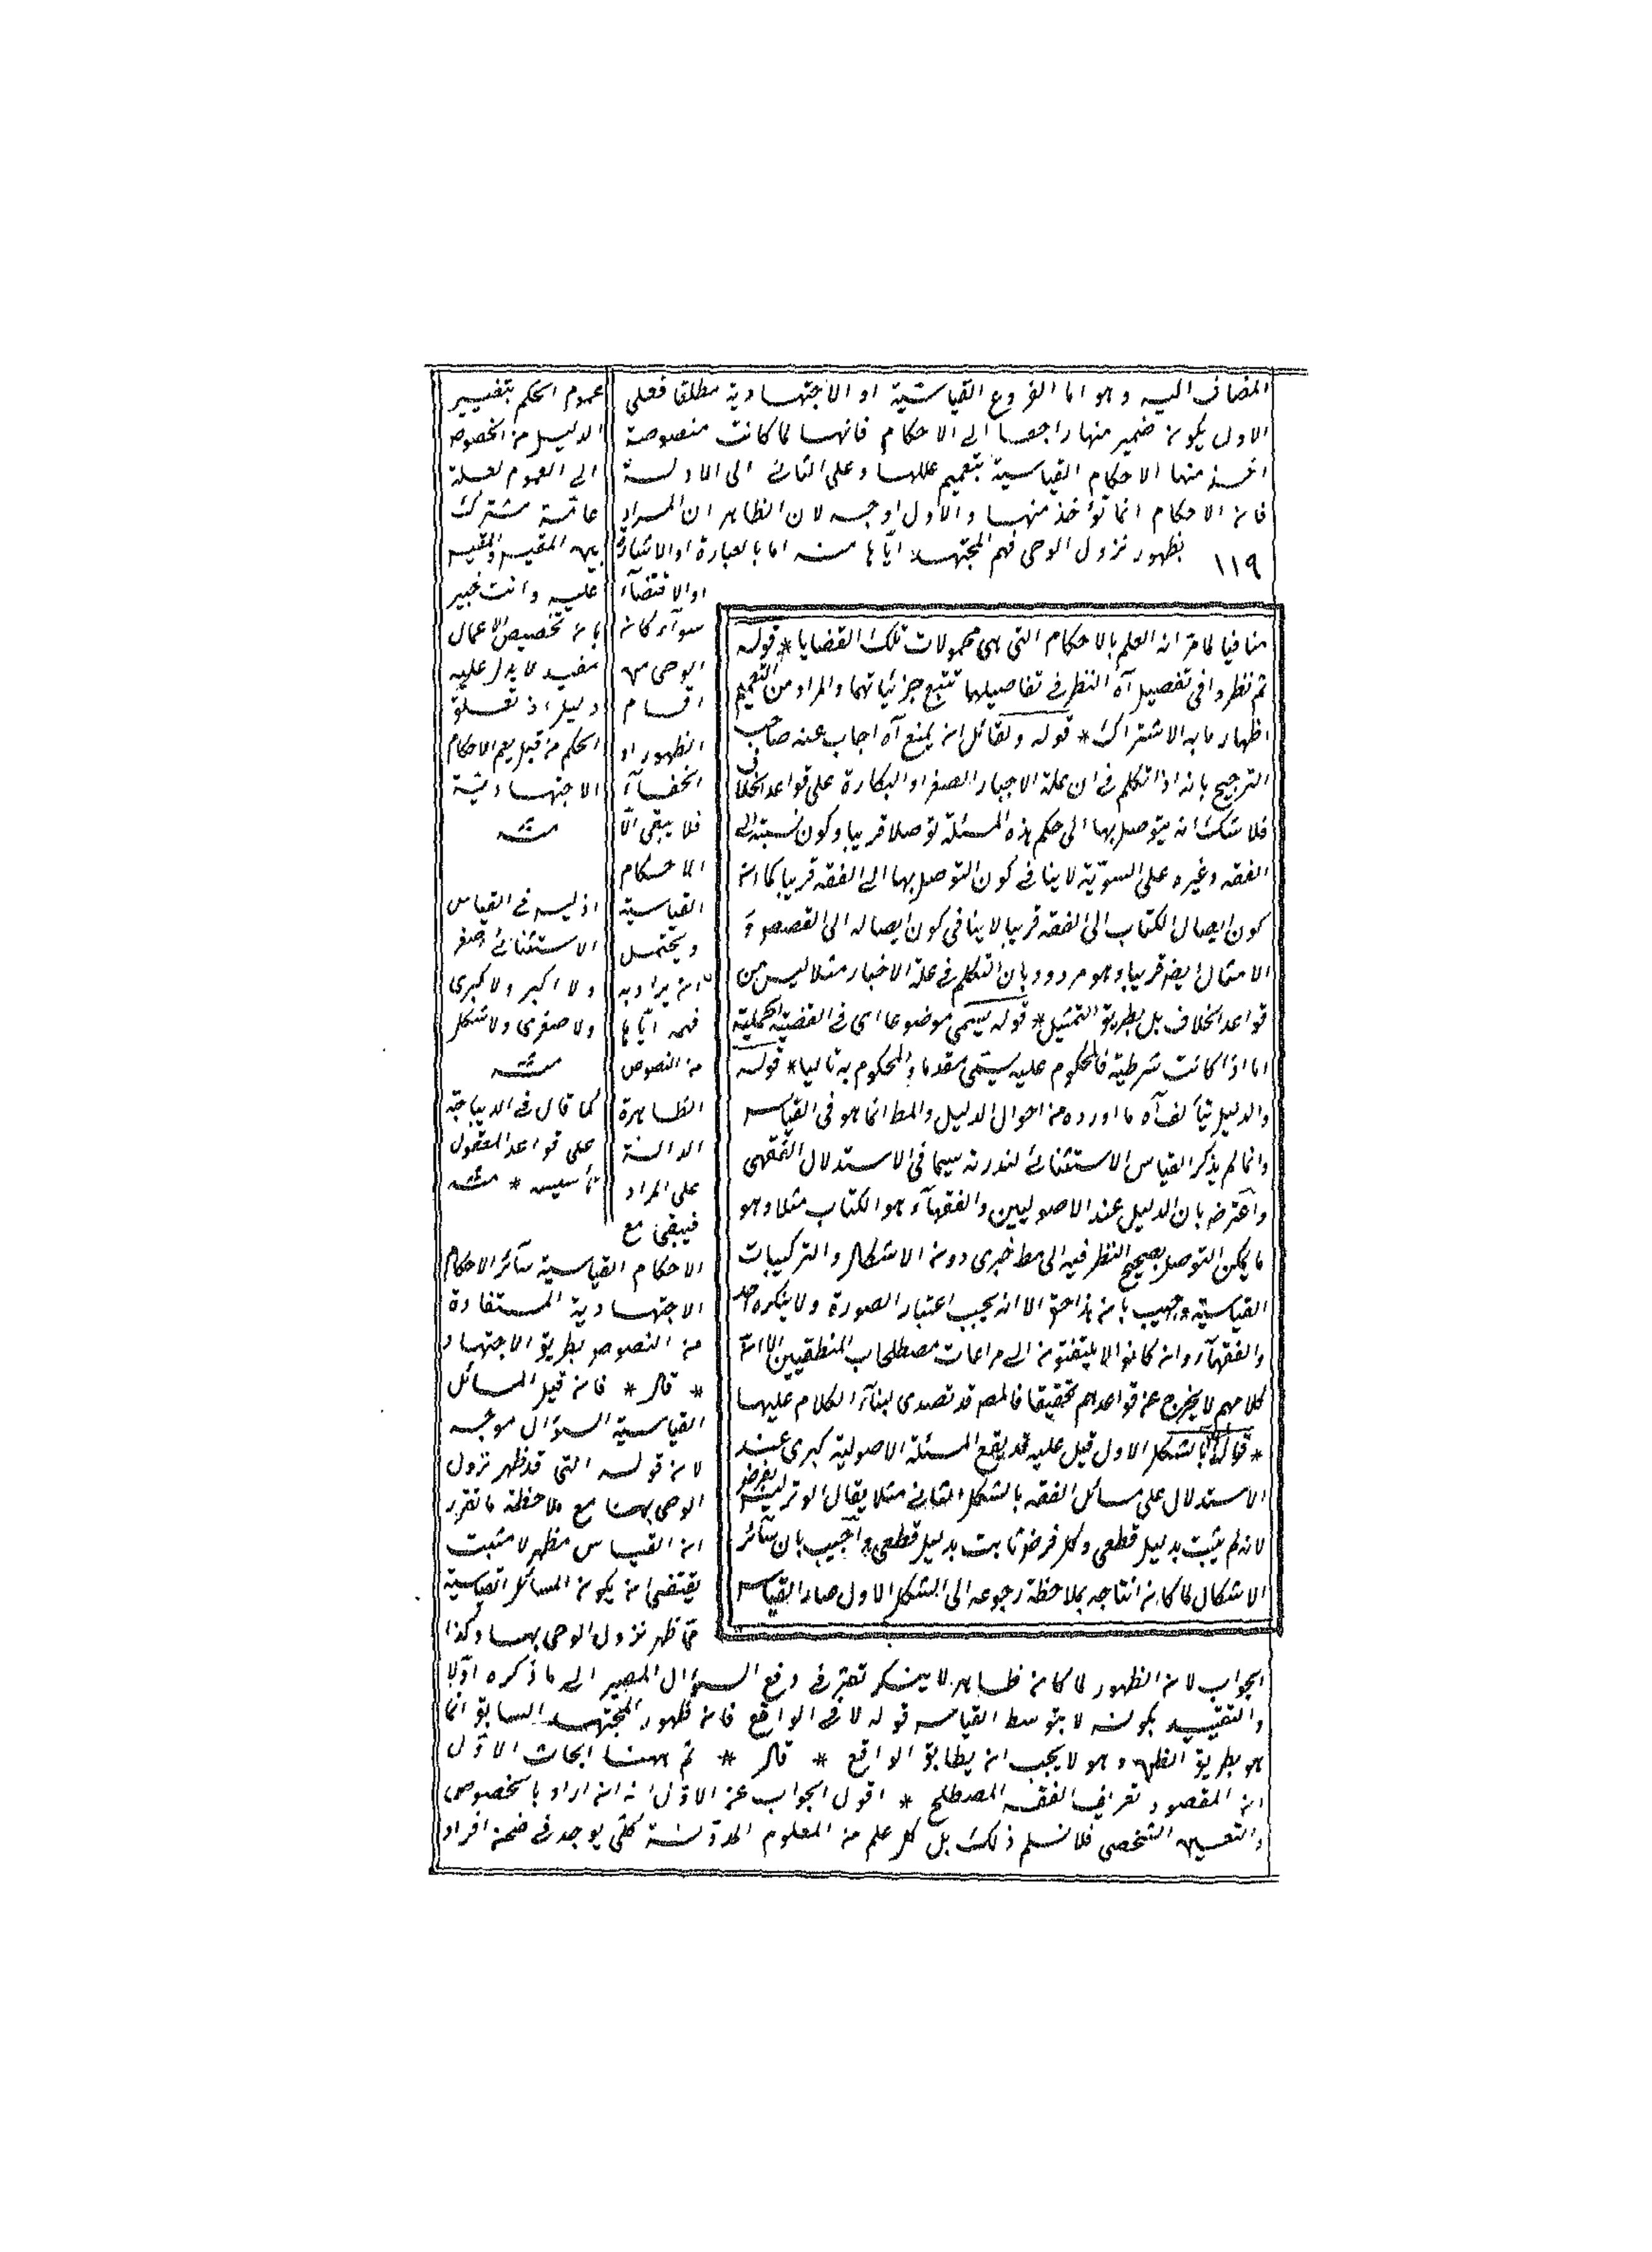 المضاف اليه وهو اما الفروع القياسية او الاجتهادية مطلقا فعلى
الاول يكون ضمير منها راجعا الى الاحكام فانها لما كانت منصوصة
اخذ منها الاحكام القياسية بتعميم عللها وعلى الثانى الى الادلة
فان الاحكام انما تؤخذ منها والاول اوجه لان الظاهر ان المراد
بظهور نزول الوحى فهم المجتهد اياها منه اما بالعبارة او الاشارة
١١٩
او الاقتضاء
سواء كان
الوحى من
اقسام
الظهور او
الخفاء
فلا يبقى الا
الاحكام
القياسية
ويحتمل
ان يراد به
فهمه اياها
من النصوص
الظاهرة
الدالة
على المراد
فيبقى مع
الاحكام القياسية سائر الاحكام
الاجتهادية المستفادة
من النصوص بطريق الاجتهاد
* قال * فان قيل المسائل
القياسية السؤال موجه
لان قوله التى قد ظهر نزول
الوحى بها مع ملاحظة ما تقرر
ان القياس مظهر لا مثبت
يقتضى ان يكون المسائل القياسية
مما ظهر نزول الوحى بها وكذا
الجواب لان الظهور لما كان ظاهر لا ينكر تعين فى دفع السؤال المصير الى ما ذكره اولا
والتقييد بكونه لا بتوسط القياس قوله لا فى الواقع فان ظهور المجتهد السابق انما
هو بطريق الظن وهو لا يجب ان يطابق الواقع * قال * ثم ههنا ابحاث الاول
ان المقصود تعريف الفقه المصطلح * اقول الجواب عن الاول انه ان اراد بالخصوص
والتعيين الشخصى فلا نسلم ذلك بل كل علم من العلوم المدونة كلى يوجد فى ضمن افراد
منافيا لما مر انه العلم بالاحكام التى هى محمولات تلك القضايا * قوله
ثم نظروا فى تفصيل آه النظر فى تفاصيلها تتبع جزئياتها والمراد من التعميم
اظهار ما به الاشتراك * قوله ولقائل ان يمنع آه اجاب عنه صاحب
الترجيح بانه اذا تكلم فى ان علة الاجبار الصغر او البكارة على قواعد الخلاف
فلا شك انه يتوصل بها الى حكم هذه المسئلة توصلا قريبا وكون نسبته الى
الفقه وغيره على السوية لا ينافى كون التوصل بها الى الفقه قريبا كما ان
كون ايصال الكتاب الى الفقه قريبا لا ينافى كون ايصاله الى القصص و
الامثال ايض قريبا وهو مردود بان التكلم فى علة الاخبار مثلا ليس من
قواعد الخلاف بل بطريق التمثيل * قوله يسمى موضوعا اى فى القضية الحملية
اما اذا كانت شرطية فالمحكوم عليه يسمى مقدما والمحكوم به تاليا * قوله
والدليل تألف آه ما اورده من احوال الدليل والمط انما هو فى القياس
وانما لم يذكر القياس الاستثنائى لندرته سيما فى الاستدلال الفقهى
واعترض بان الدليل عند الاصوليين والفقهاء هو الكتاب مثلا وهو
ما يمكن التوصل بصحيح النظر فيه الى مط خبرى دون الاشكال والتركيبات
القياسية واجيب بان هذا حق الا انه يجب اعتبار الصورة ولا ينكره احد
والفقهاء وان كانوا لا يلتفتون الى مراعات مصطلحات المنطقيين الا ان
كلامهم لا يخرج عن قواعدهم تحقيقا فالمص قد تصدى لبناء الكلام عليها
* قال بالشكل الاول قيل عليه قد يقع المسئلة الاصولية كبرى عند
الاستدلال على مسائل الفقه بالشكل الثانى مثلا يقال الوتر ليس بفرض
لانه لم يثبت بدليل قطعى وكل فرض ثابت بدليل قطعى واجيب بان سائر
الاشكال لما كان انتاجه بملاحظة رجوعه الى الشكل الاول صار القياس
عموم الحكم بتغيير
الدليل من الخصوص
الى العموم لعلة
عامة مشترك
بين المقيس والمقيس
عليه وانت خبير
بان تخصيص الاعمال
مفيد لما يدل عليه
دليل اذ تعلق
الحكم من قبل يعم الاحكام
الاجتهادية
منه
اذ ليس فى القياس
الاستثنائى اصغر
ولا اكبر ولا كبرى
ولا صغرى ولا شكل
منه
كما قال فى الديباجة
على قواعد المعقول
تأسيس * منه